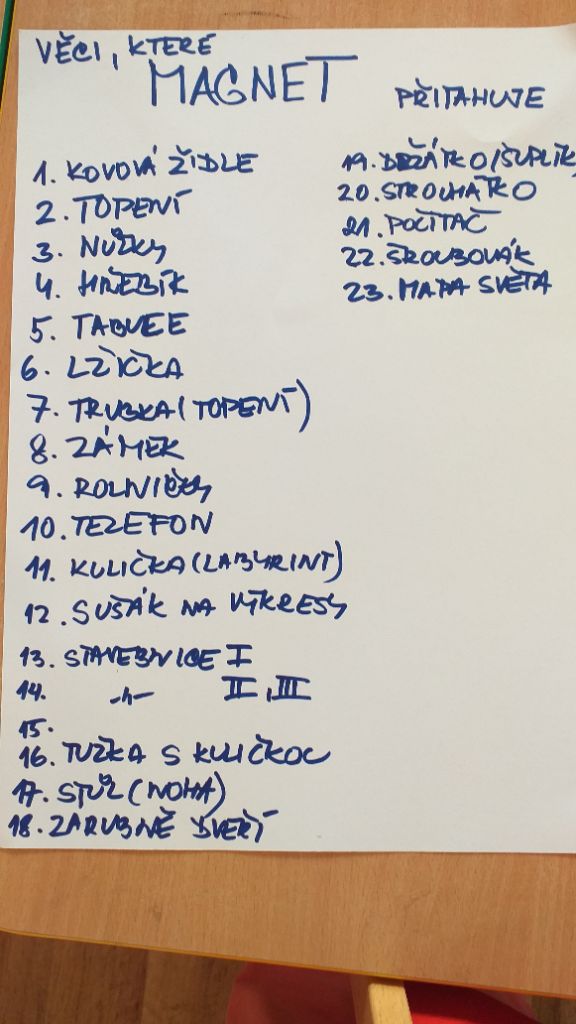 VĚCI, KTERÉ
MAGNET
PŘITAHUJE
1. KOVOVÁ ŽIDLE
2. TOPENÍ
3. NŮŽKY
4. HŘEBÍK
5. TABULE
6. LŽIČKA
7. TRUBKA (TOPENÍ)
8. ZÁMEK
9. ROLNIČKY
10. TELEFON
11. KULIČKA (LABYRINT)
12. SUŠÁK NA VÝKRESY
13. STAVEBNICE I
14. -"- II, III
15.
16. TUŽKA S KULIČKOU
17. STŮL (NOHA)
18. ZÁRUBNĚ DVEŘÍ
19. DRŽÁTKO (ŠUPLÍK)
20. STROUHÁTKO
21. POČÍTAČ
22. ŠROUBOVÁK
23. MAPA SVĚTA